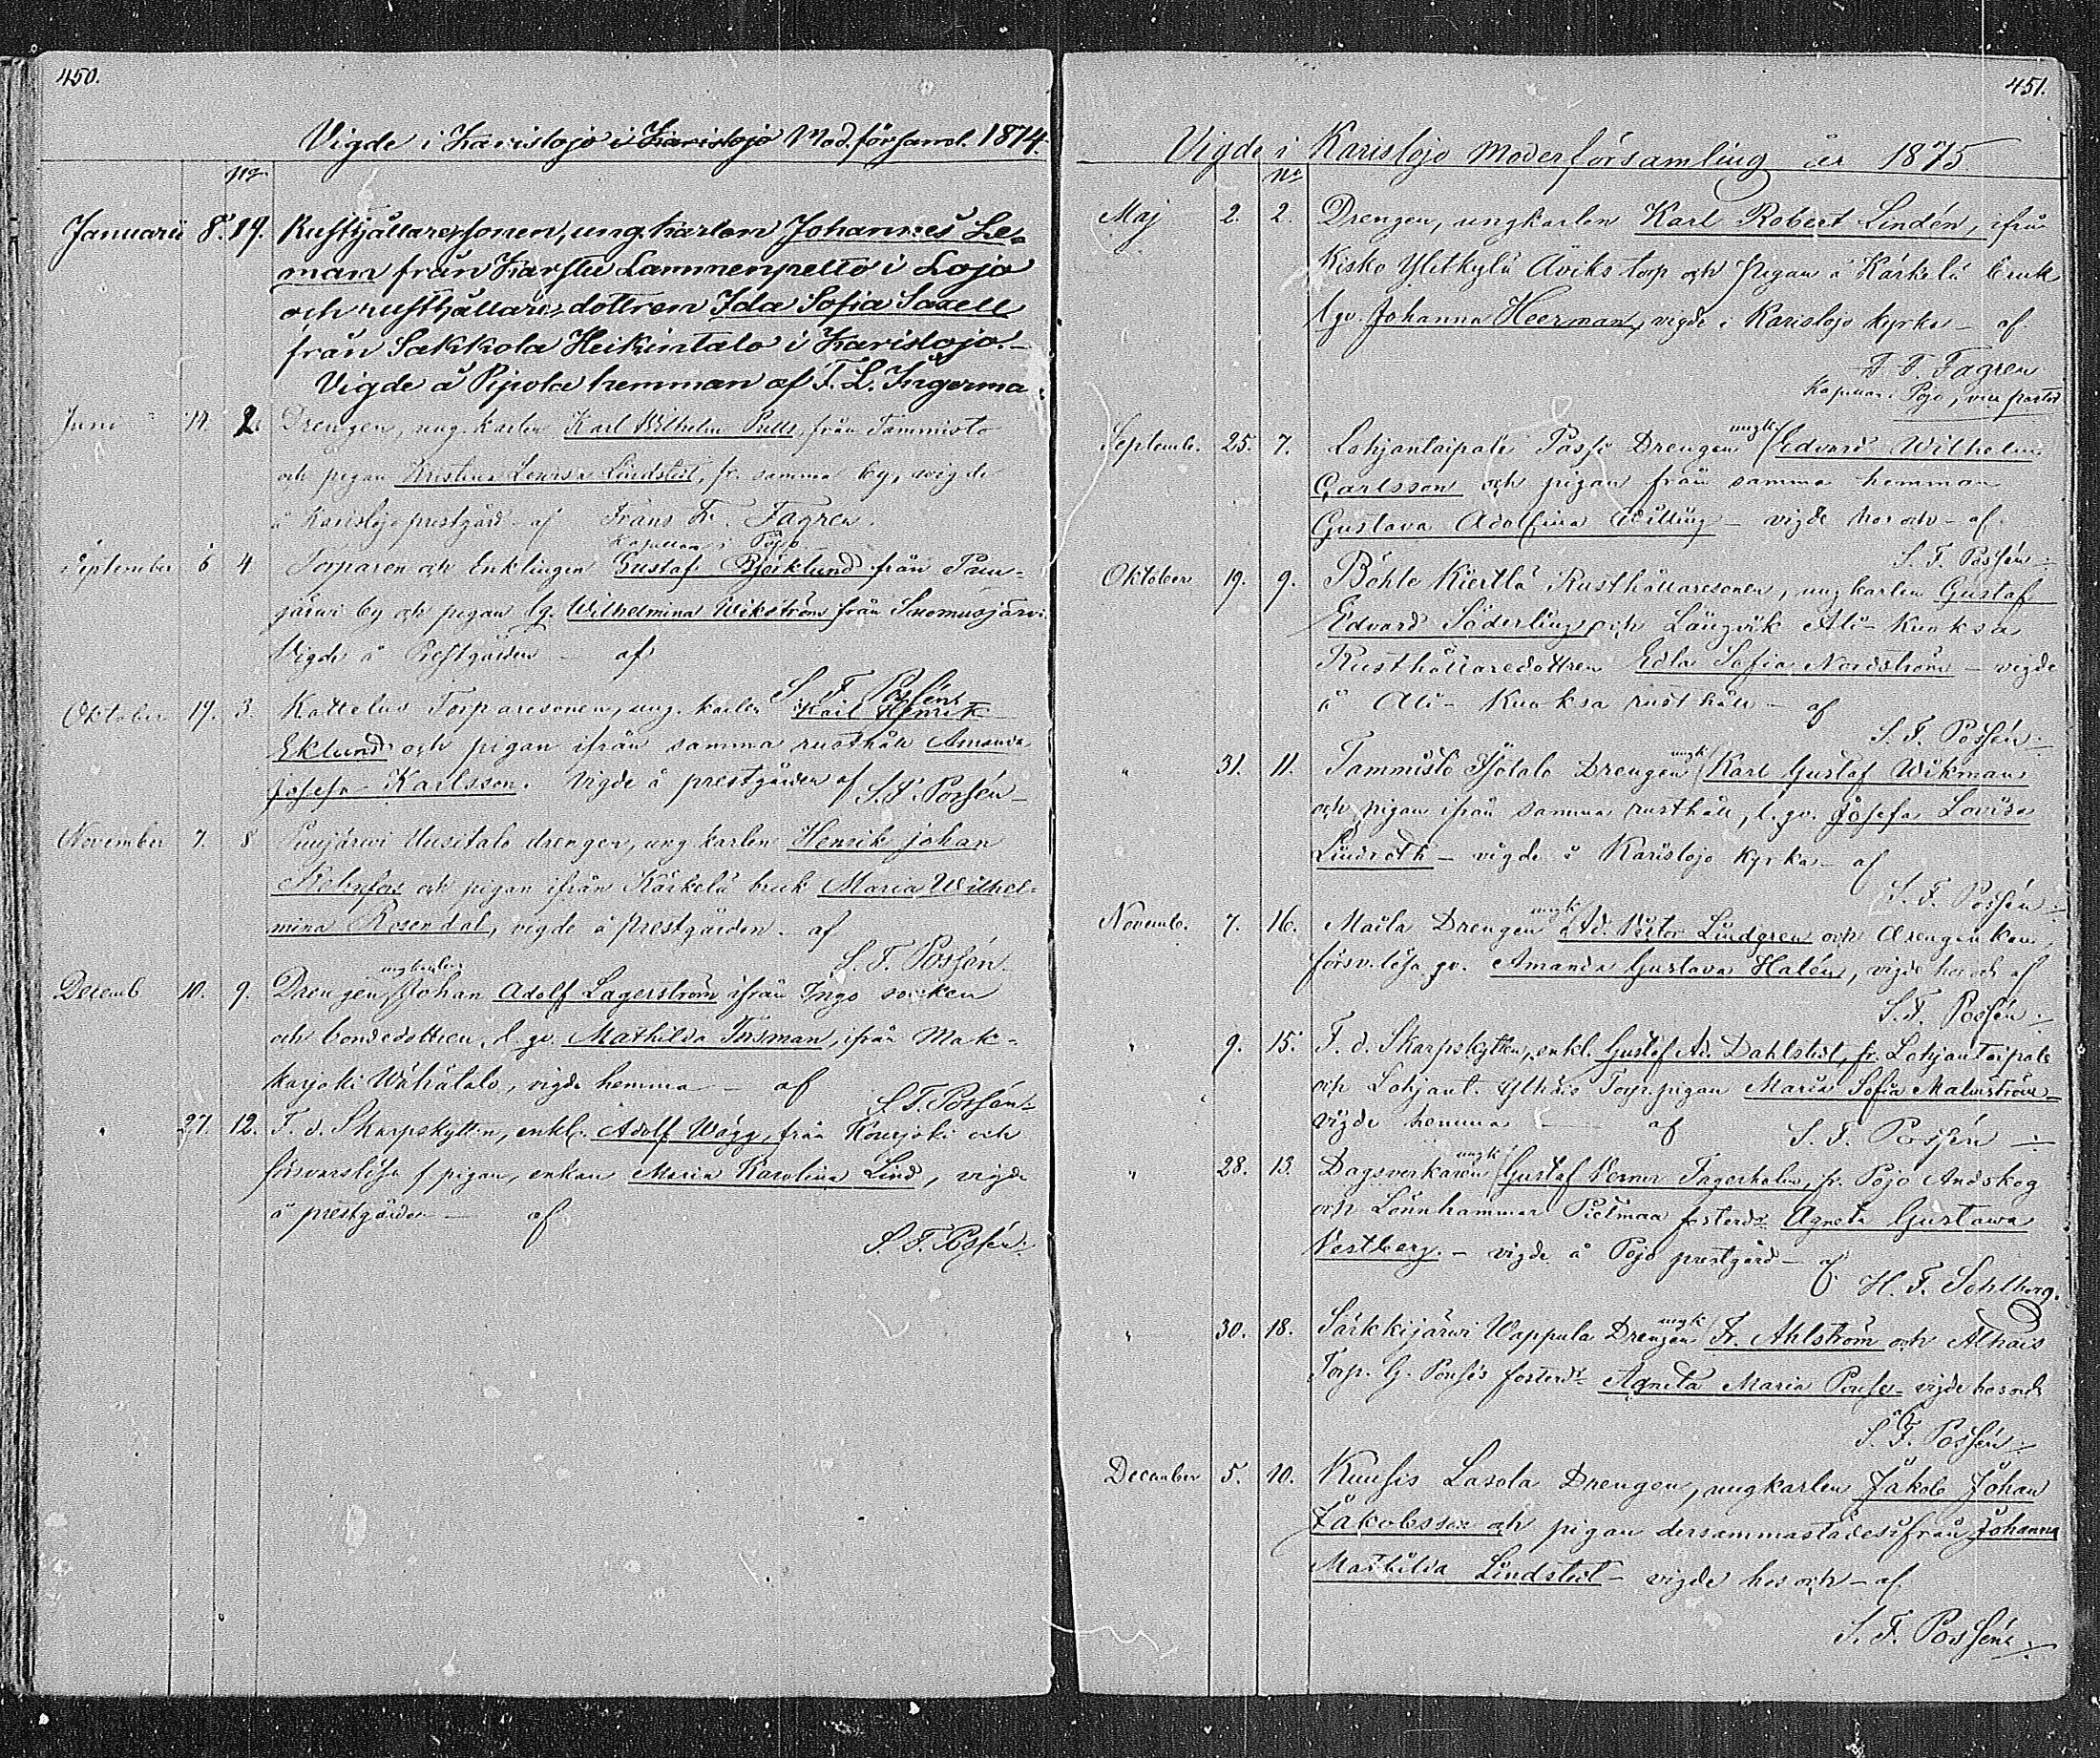 450.
Vigde i Karislojo i Karislojo Mod. församl. 1874.
No
Januarii 8. 19. Rusthållaresonen, ungkarlen Johannes Le-
man från Karstu Lammenpelto i Lojo
och rusthållaredottren Ida Sofia Saxell
från Sakkola Heikintalo i Karislojo.
Vigde å Pipola hemman af F. L. Ingerma.
Juni 14. 2. Drengen, ung.karlen Karl Wilhelm från Tammisto
och pigan Kristina Lovisa Lindstedt, fr. samma by, vigde
å Karislojo prestgård af Frans Fr. Fagren.
Kapellan i Pojo
September 6 4. Torparen och Enklingen Gustaf Björklund från Pau-
järwi by och pigan Wilhelmina Wikström från Suomusjärvi
Vigde å Prestgården — af
S. F. Possén
Oktober 19. 3. Kattelus Torparesonen, ung.karlen Karl Henrik
Eklund och pigan ifrån samma rusthåll Amanda
Josefa Karlsson. Vigde å prestgården af S. F. Possén
November 7. 8 Puujärwi Uusitalo drengen, ungkarlen Henrik Johan
och pigan ifrån Kärkelä bruk Maria Wilhel-
mina Rosendal, vigde å prestgården — af
S. F. Possén.
Decemb. 10. 9. Drengen, ungkarlen Johan Adolf Lagerström ifrån Ingo socken
och bondedottren, l. gv. Mathilda Forsman, ifrån Mak-
karjoki Wähätalo, vigde hemma — af
S. F. Possén.
" 27. 12. F. d. Skarpskytten, enkl. Adolf Wägg, från Kourjoki och
försvarslösa pigan, enkan Maria Karolina Lind, vigde
å prestgården — af
S. F. Possén.
451.
Vigde i Karislojo Moderförsamling år 1875.
No
Maj 2. 2. Drengen, ungkarlen Karl Robert Lindén, ifrån
Kisko Ylikylä Åviks torp och pigan å Kärkelä bruk
l. gv. Johanna Heerman, vigde i Karislojo kyrka — af
F. F. Fagren
Kapellan i Pojo, vice pastor
Septembr. 25. 7. Lohjantaipale Passi Drengen ungk. Edvard Wilhelm
Carlsson och pigan från samma hemman
Gustava Adolfina Willing — vigde hos och — af
S. F. Possén.
Oktober 19. 9. Böhle Kiertlä Rusthållaresonen, ungkarlen Gustaf
Edvard Söderling och Långvik Ali-Kuoksa
Rusthållaredottren Edla Sofia Nordström — vigde
å Ali-Kuoksa rusthåll — af
S. F. Possén.
" 31. 11. Tammisto Isotalo Drengen ungk. Karl Gustaf Wikman
och pigan ifrån samma rusthåll, l. gv. Josefa Lovisa
Lindroth — vigde i Karislojo kyrka — af
S. F. Possén.
Novembr. 7. 16. Maila Drengen ungk. Ad. Victor Lindgren och
försv.lösa gv. Amanda Gustava Halén, vigde hos och af
S. F. Possén.
" 9. 15. F. d. Skarpskytten, enkl. Gustaf Ad. Dahlstedt, fr. Lohjantaipale
och Lohjant. Torp.pigan Maria Sofia Malmström —
vigde hemma — af S. F. Possén
" 28. 13. Dagsverkaren ungk. Gustaf Verner Fagerholm, fr. Pojo Andskog
och Lönnhammar Pietmaa fosterdr Agneta Gustava
Vestberg. — vigde å Pojo prestgård — af
H. F. Sohlberg.
" 30. 18. Särkkijärwi Wappula Drengen ungk. Fr. Ahlström och Alhais
Torp. G. Ponsés fosterdr Agneta Maria Ponse — vigde hos och
af
S. F. Possén.
December 5. 10. Kuusis Lasola Drengen, ungkarlen Jakob Johan
Jakobsson och pigan dersammastädes ifrån Johanna
Mathilda Lindstedt — vigde hos och — af
S. F. Possén.